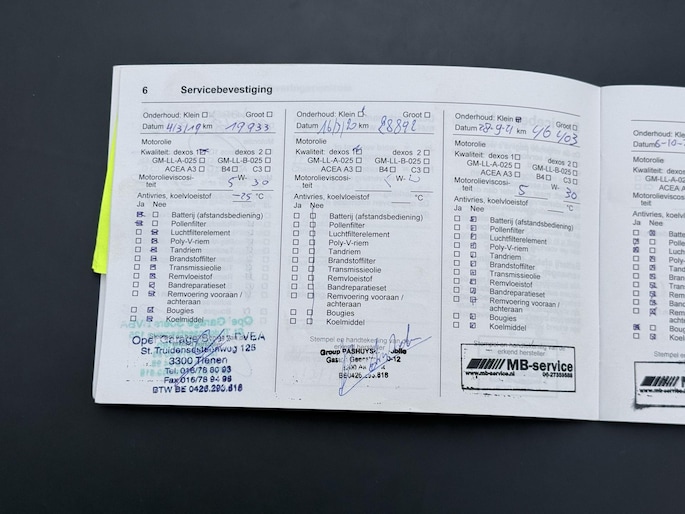 6 Servicebevestiging
Onderhoud: Klein Groot
Datum 4/3/19 km 19933
Motorolie
Kwaliteit: dexos 1 dexos 2
GM-LL-A-025 GM-LL-B-025
ACEA A3 B4 C3
Motorolieviscosi-
teit 5 W- 30
Antivries, koelvloeistof -25 °C
Ja Nee
Batterij (afstandsbediening)
Pollenfilter
Luchtfilterelement
Poly-V-riem
Tandriem
Brandstoffilter
Transmissieolie
Remvloeistof
Bandreparatieset
Remvoering vooraan /
achteraan
Bougies
Koelmiddel
Opel Garage
St. Truidensesteenweg 126
3300 Tienen
Tel. 016/78 80 93
Fax 016/78 94 96
BTW BE 0426.290.616
Onderhoud: Klein Groot
Datum km 28892
Motorolie
Kwaliteit: dexos 1 dexos 2
GM-LL-A-025 GM-LL-B-025
ACEA A3 B4 C3
Motorolieviscosi- W-
teit
Antivries, koelvloeistof °C
Ja Nee
Batterij (afstandsbediening)
Pollenfilter
Luchtfilterelement
Poly-V-riem
Tandriem
Brandstoffilter
Transmissieolie
Remvloeistof
Bandreparatieset
Remvoering vooraan /
achteraan
Bougies
Koelmiddel
Stempel en handtekening
erkend hersteller
Group
Onderhoud: Klein Groot
Datum 28-9-21 km 46 403
Motorolie
Kwaliteit: dexos 1 dexos 2
GM-LL-A-025 GM-LL-B-025
ACEA A3 B4 C3
Motorolieviscosi- W-
teit 5 30
Antivries, koelvloeistof °C
Ja Nee
Batterij (afstandsbediening)
Pollenfilter
Luchtfilterelement
Poly-V-riem
Tandriem
Brandstoffilter
Transmissieolie
Remvloeistof
Bandreparatieset
Remvoering vooraan /
achteraan
Bougies
Koelmiddel
erkend hersteller
MB-service
www.mb-service.nl
Onderhoud: Klein
Datum
Motorolie
Kwaliteit: dexos 1
GM-LL-A-025
ACEA A3
Motorolieviscosi-
teit
Antivries, koelvloeistof
Ja Nee
Batterij
Pollenfilter
Luchtfilter
Poly-V-
Tandriem
Brandstof
Transmis
Remvloei
Bandrepa
Remvoer
achteraan
Bougies
Koelmidd
Stempel en